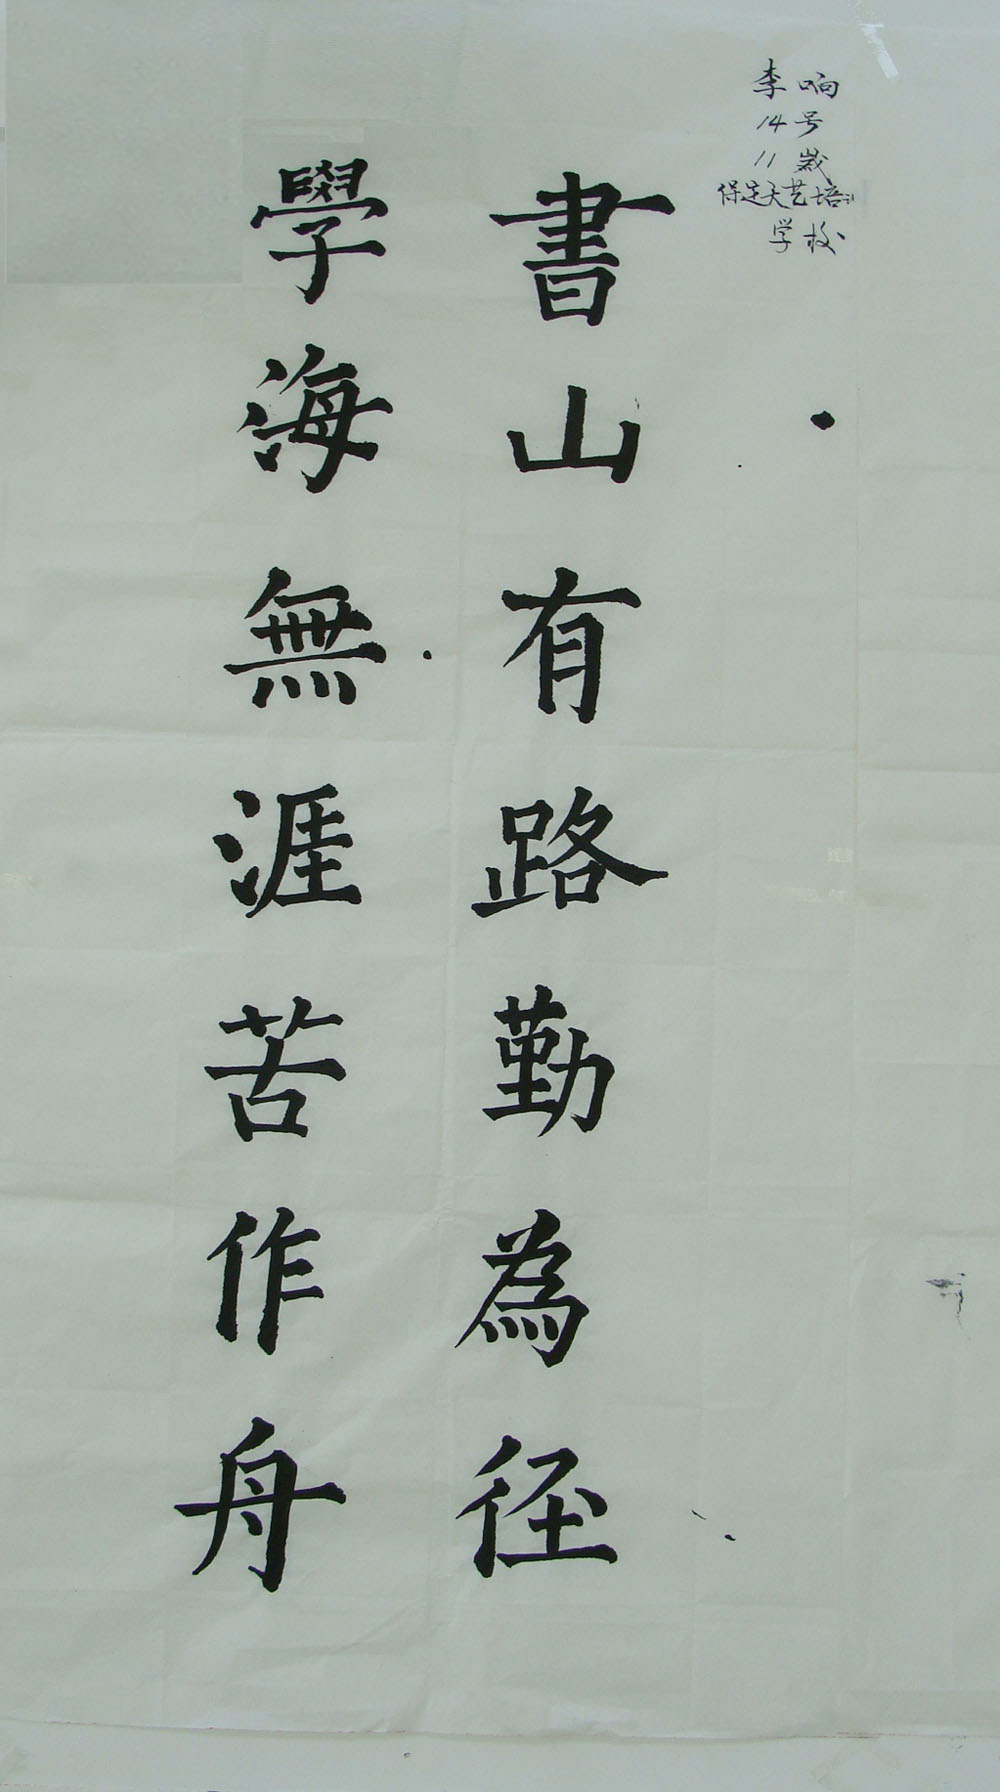 李响
14号
11岁
保定天艺培训
学校
書山有路勤為径
學海無涯苦作舟